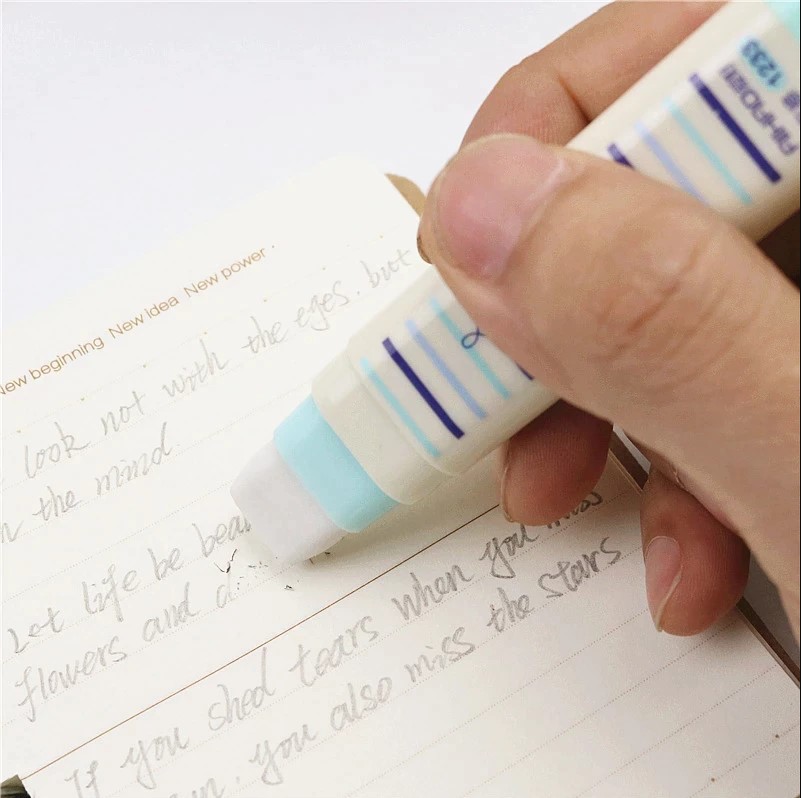 New beginning New idea New power
look not with the eyes, but
the mind
Let life be
flowers and
If you shed tears when you miss
you also miss the stars
AIHAO
1233